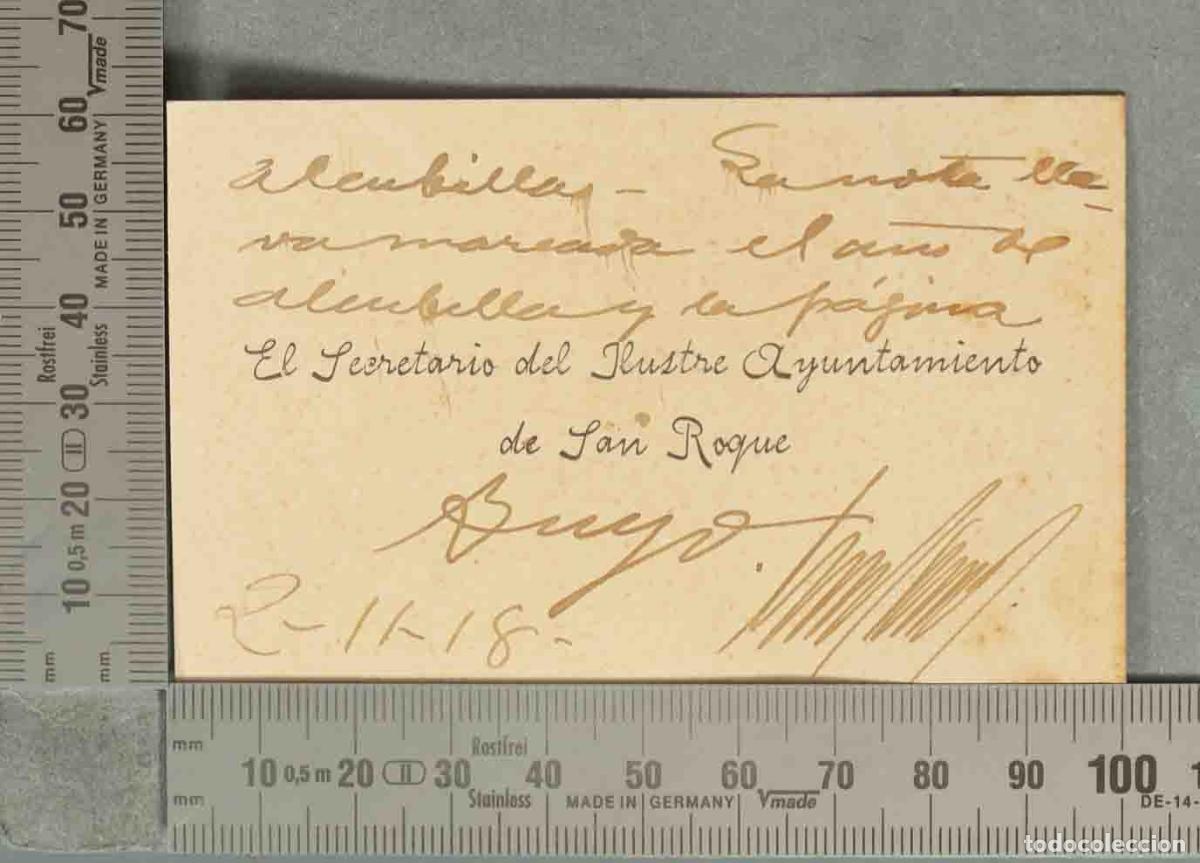 Alcubillas – La nota lle-
va marcada el año de
Alcubilla y la página
El Secretario del Ilustre Ayuntamiento
de San Roque
Suyo.
2-11-18-
70
60
50
40
30
20
10
0,5 m
II
mm
mm
Rostfrei
Stainless
MADE IN GERMANY
Vmade
mm
10 0,5 m 20 II 30 40 50 60 70 80 90 100
Rostfrei
mm
Stainless MADE IN GERMANY Vmade
DE-14-
todocoleccion